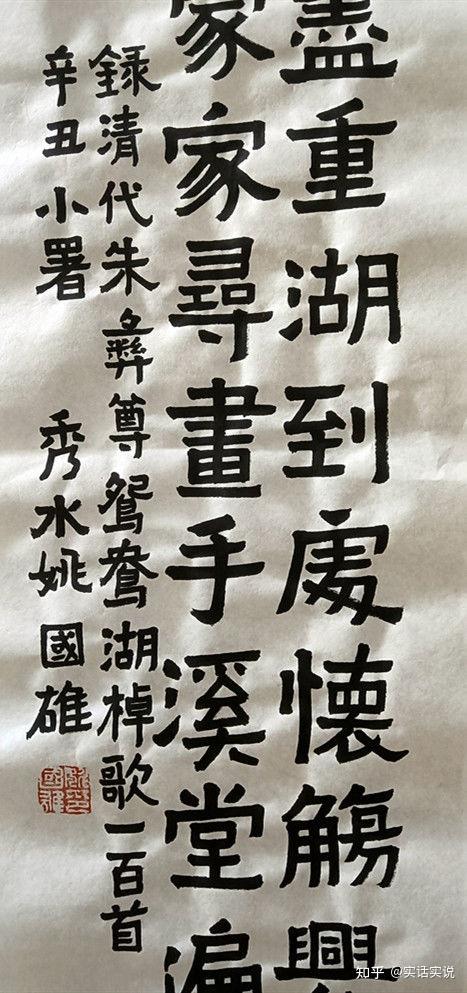 盡重湖到處懷觴興
家家尋畫手溪堂遍
録清代朱彝尊鴛鴦湖棹歌一百首
辛丑小署 秀水姚國雄
姚印國雄
知乎 @实话实说